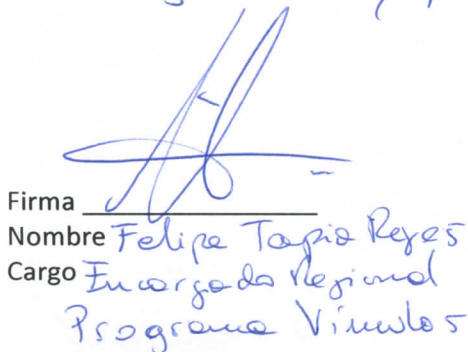 Firma
Nombre Felipe Tapia Reyes
Cargo Encargado Regional
Programa Vínculos